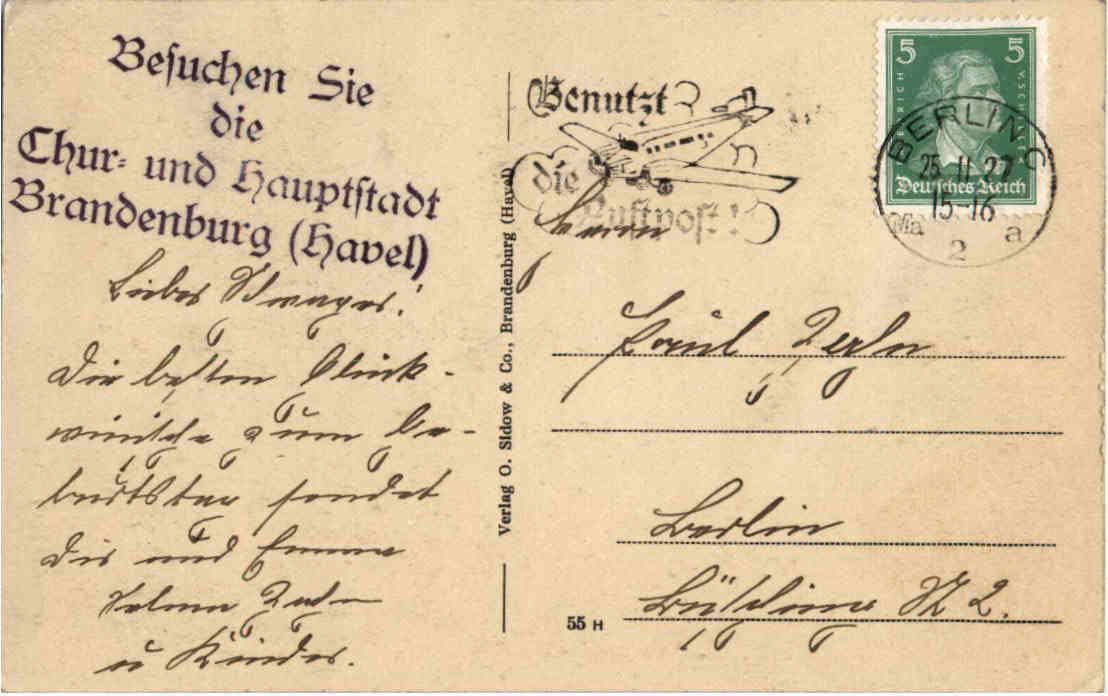 Besuchen Sie
die
Chur- und Hauptstadt
Brandenburg (Havel)
Lieber Schwager!
Die besten Glück-
wünsche zum Ge-
burtstag sendet
Dir und Emma
u Kinder.
Verlag O. Sidow & Co., Brandenburg (Havel)
55 H
Benutzt
die
Luftpost!
Herrn
Paul
Berlin
5 5
Deutsches Reich
BERLIN C
25.11.27
15-16
Ma 2 a